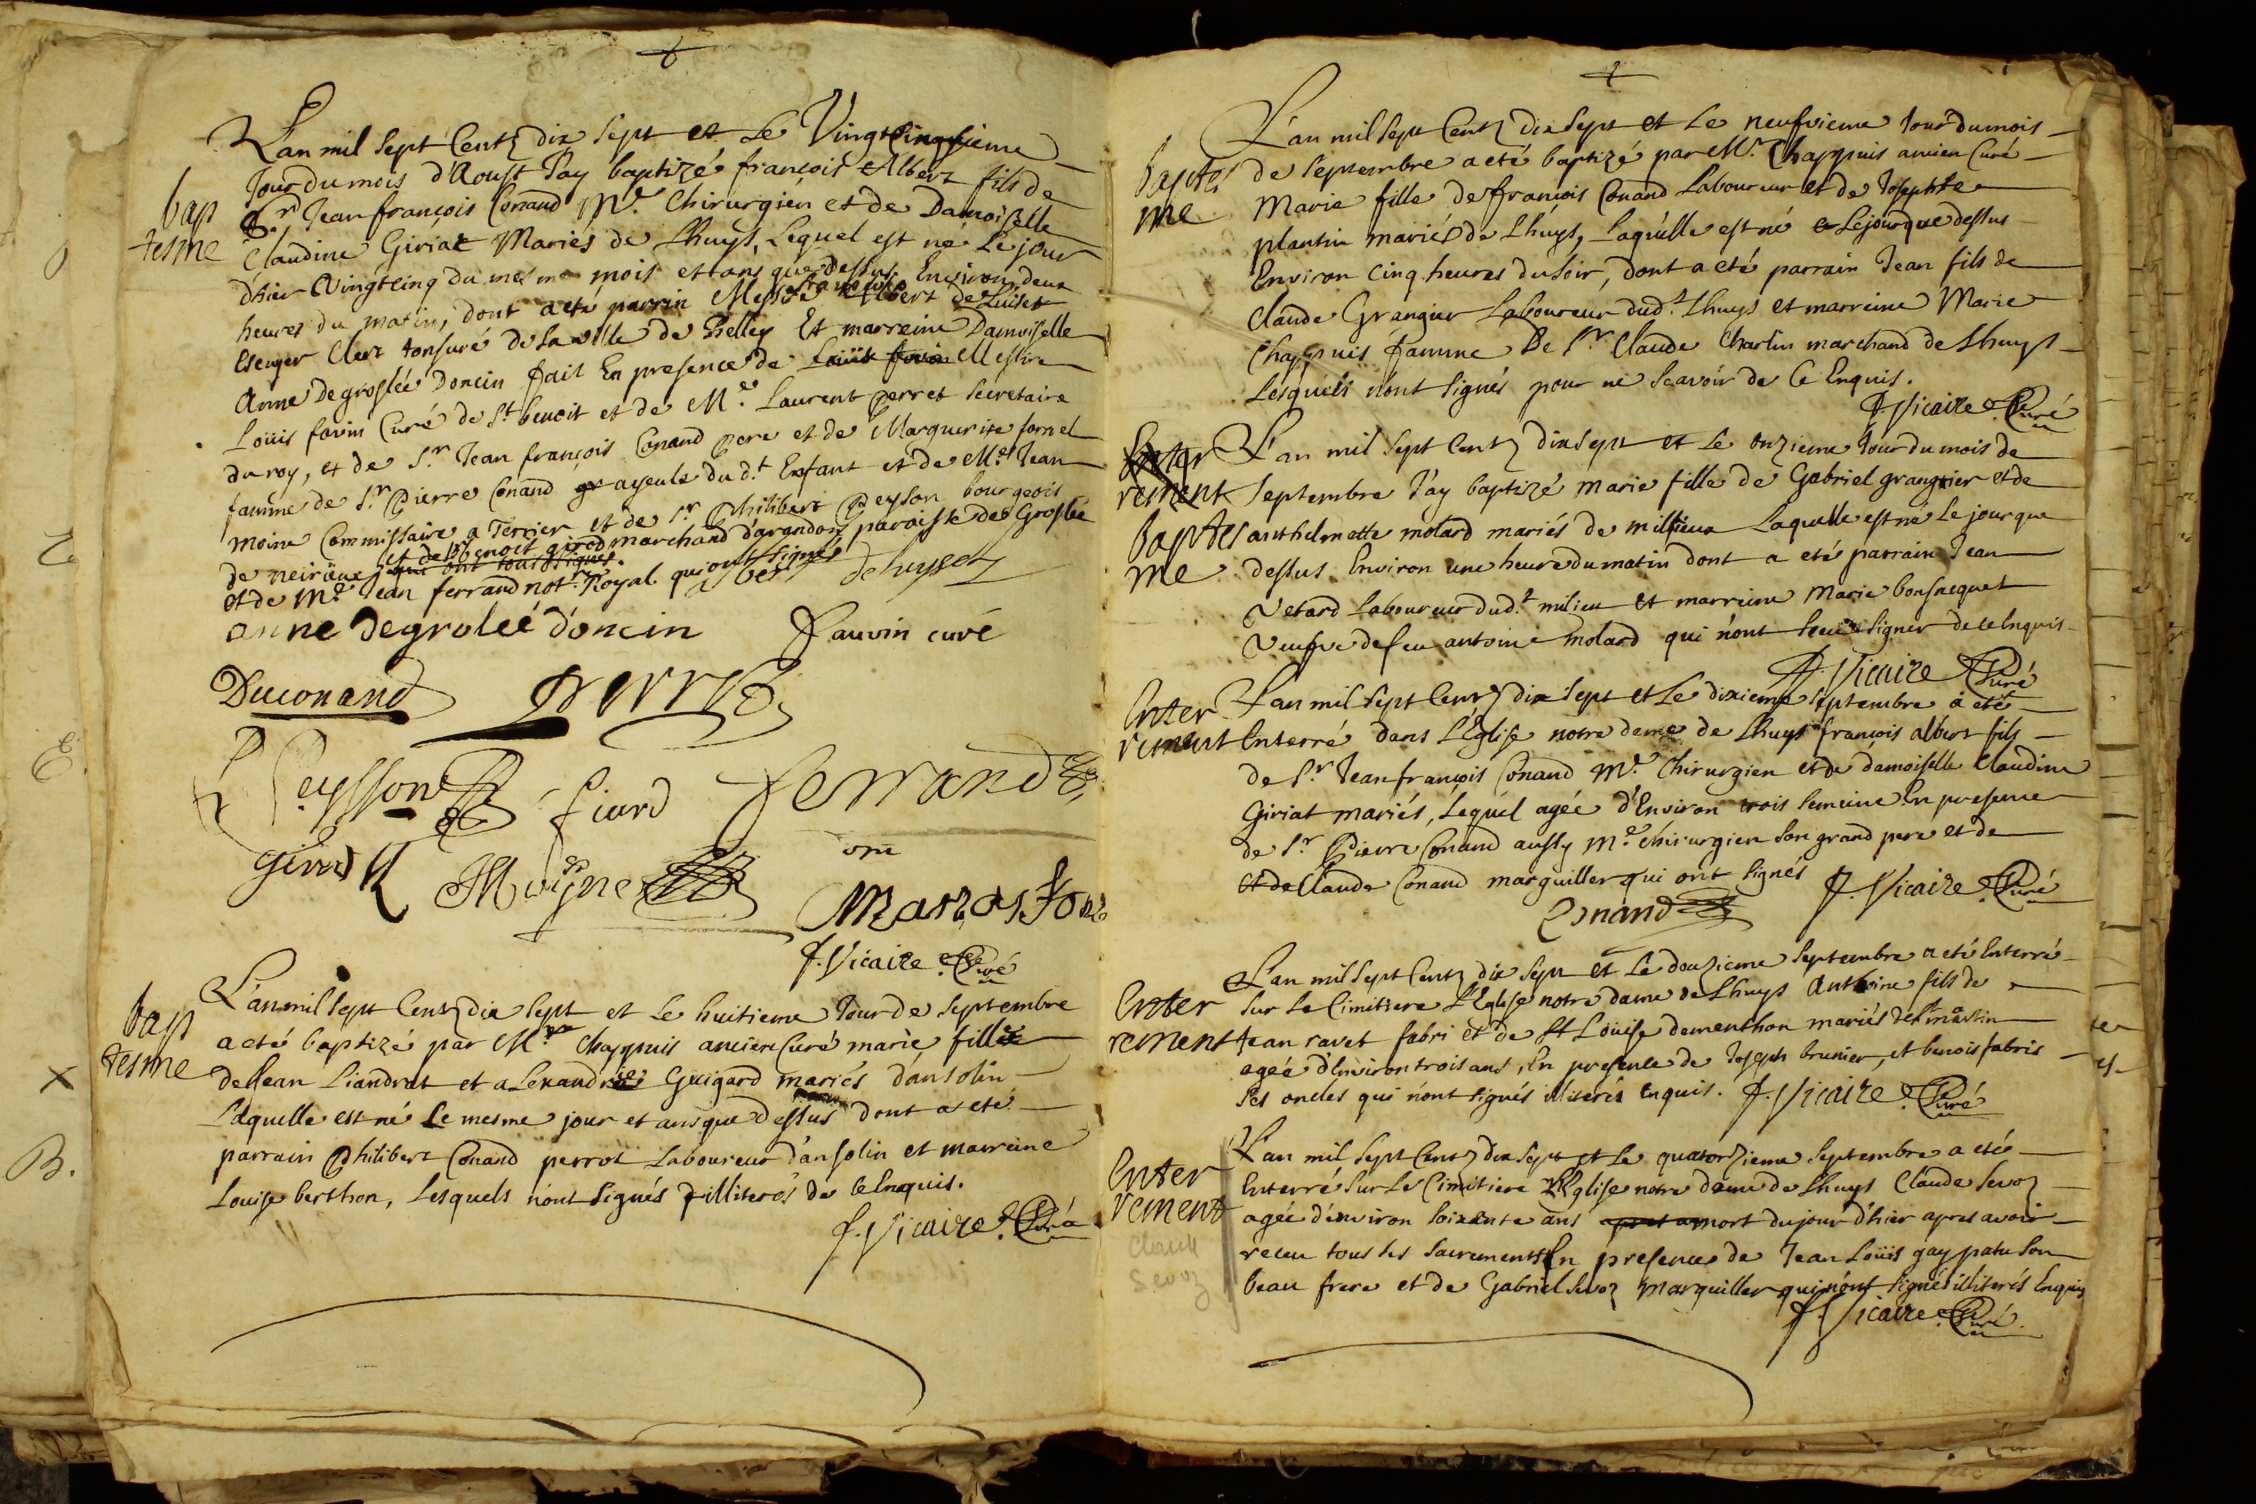 L'an mil sept Centz dix sept et Le Vingtcinqsieme
Jour du mois d'Aoust J'ay baptizé françois Albert fils de
bap
tesme
Sr. Jean françois Conand Me. Chirurgien et de Damoiselle
Claudine Giriat Mariés de Lhuys, Lequel est né Le jour
d'hier Vingtcinq du mesme mois et ans que dessus Environ deux
heures du matin, dont a eté parrin Messire françois Albert de Luiset
Escuyer Clerc tonsuré de la ville de Belley Et marreine Damoiselle
Anne De groslée Doncin fait En presence de Messire
Loüis favin Curé de St. benoit et de Me. Laurent perret secretaire
du roy, et de Sr. Jean françois Conand pere et de Marguerite fornel
famme de Sr. Pierre Conand ayeule du d.t Enfant et de Me. Jean
moine Commissaire a Terrier et de Sr. Philibert Peyson bourgeois
de neirieux et de Sr. benoit girod marchand d'arandon paroisse de Groslée
qui ont tous signés
et de Me. Jean ferrand not.re Royal. qui ont signés
anne De groleé doncin
Fauvin curé
Duconand
Perret
Peysson
fiard
ferrand
girod
Moyne
F. Vicaire Curé
bap
tesme
L'an mil sept Centz dix sept et Le huitieme Jour de Septembre
a eté baptizé par Mr. Chappuis ancien Curé marie fille
de Jean Liandrat et alexandrie Guigard mariés d'ansolin
Laquelle est né Le mesme jour et ans que dessus dont a eté
parrain Philibert Conand perrot Laboureur d'ansolin et marreine
Louise berthon, Lesquels n'ont signés illiterés de ce Enquis.
F. Vicaire Curé
L'an mil sept Centz dix sept et Le neufvieme Jour du mois
baptes
me
de Septembre a eté baptizé par Mr. Chappuis ancien Curé
Marie fille de françois Conand Laboureur et de Josephte
plantin mariés de Lhuys, Laquelle est né Le jour que dessus
Environ cinq heures du soir, dont a eté parrain Jean fils de
Claude Grangier Laboureur dud.t Lhuys et marreine Marie
Chappuis famme De Sr. Claude Charlin marchand de Lhuys
Lesquels n'ont signés pour ne Scavoir de Ce Enquis.
F. Vicaire Curé
Enter
rement
baptes
me
L'an mil sept Centz dix sept et Le onzieme Jour du mois de
Septembre J'ay baptizé marie fille de Gabriel grangier et de
anthelmette molard mariés de millieux Laquelle est né Le jour que
dessus Environ une heure du matin dont a eté parrain Jean
Verard Laboureur dud.t milieu et marreine Marie bonsacquet
Veufve de feu antoine molard qui n'ont Sceu Signer de ce Enquis
F. Vicaire Curé
Enter
rement
L'an mil sept Centz dix sept et Le dixieme Septembre a eté
Enterré dans L'Eglise notre dame de Lhuys françois albert fils
de Sr. Jean françois Conand Me. Chirurgien et de damoiselle Claudine
Giriat mariés, Lequel agée d'Environ trois semeine En presence
de Sr. Pierre Conand aussy Me. chirurgien son grand pere et de
et de Claude Conand marguiller qui ont signés
F. Vicaire Curé
Conand
Enter
rement
L'an mil sept Centz dix sept et Le douzieme Septembre a eté Enterré
Sur Le Cimitiere L'Eglise notre dame de Lhuys Anthoine fils de
Jean ravet fabri et de Loüise dementhon mariés de St. martin
agée d'Environ trois ans, En presence de Joseph brunier, et benois fabris
Ses oncles qui n'ont signés illiterés Enquis. F. Vicaire Curé
Enter
rement
Claude
Sevoz
L'an mil sept Centz dix sept et Le quatorzieme Septembre a eté
Enterré Sur Le Cimitiere L'Eglise notre dame de Lhuys Claude Sevoz
agée d'environ Soixante ans mort du jour d'hier apres avoir
receu tous les sacrements En presence de Jean Loüis gay patu son
beau frere et de Gabriel Sevoz marguiller qui n'ont signés illiterés Enquis
F. Vicaire Curé